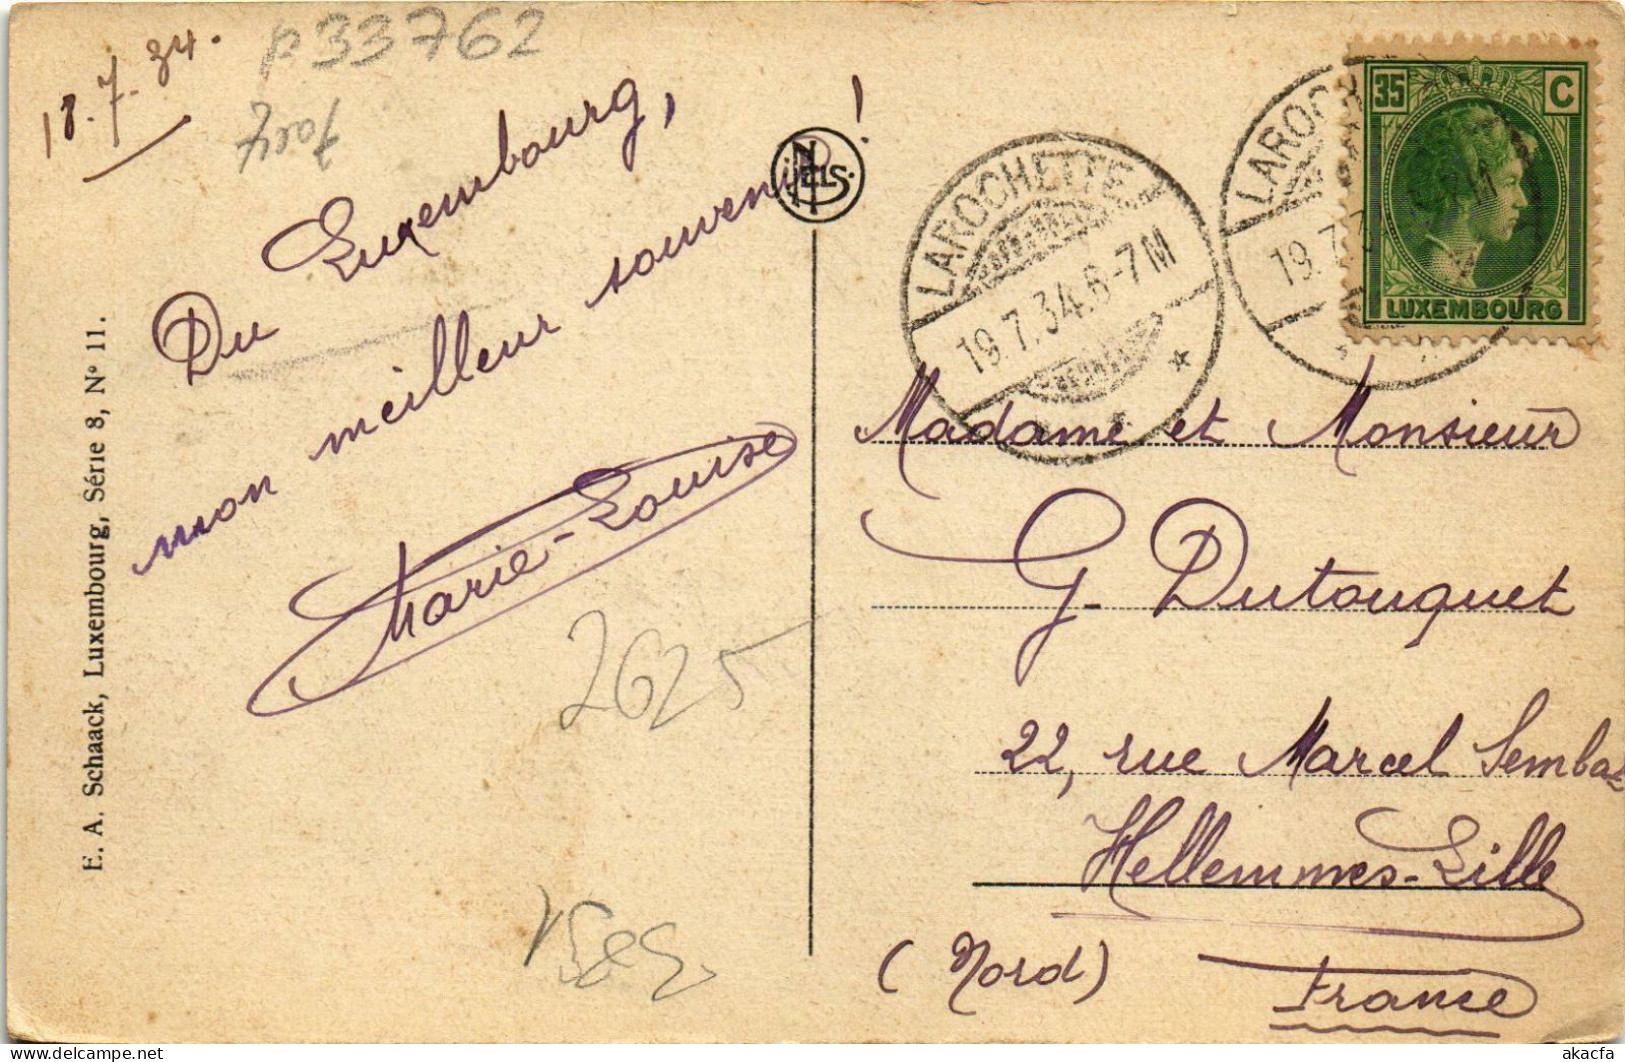 18.7.34.
P33762
Du Luxembourg,
mon meilleur souvenir!
Marie-Louise
2625
E. A. Schaack, Luxembourg, Série 8, Nº 11.
NELS
LAROCHETTE
19.7.34.6-7M
LAROCH
19.7
35 C
LUXEMBOURG
Madame et Monsieur
G. Dutouquet
22, rue Marcel Sembat
Hellemmes-Lille
(Nord) France
akacfa